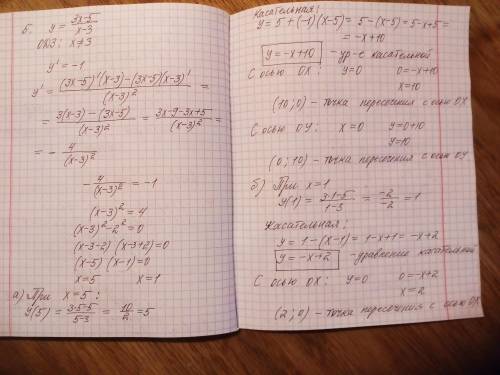 5. y = (3x-5)/(x-3)
ОДЗ: x≠3
y' = -1
y' = ((3x-5)'(x-3)-(3x-5)(x-3)')/(x-3)² =
= (3(x-3)-(3x-5))/(x-3)² = (3x-9-3x+5)/(x-3)² =
= - 4/(x-3)²
- 4/(x-3)² = -1
(x-3)² = 4
(x-3)²-2² = 0
(x-3-2)(x-3+2)=0
(x-5)(x-1)=0
x=5 x=1
а) При x=5:
y(5) = (3·5-5)/(5-3) = 10/2 = 5
Касательная:
y = 5+(-1)(x-5)= 5-(x-5)= 5-x+5=
= -x+10
y=-x+10 - ур-е касательной
С осью OX: y=0 0=-x+10
x=10
(10;0) - точка пересечения с осью OX
С осью OY: x=0 y=0+10
y=10
(0;10) - точка пересечения с осью OY
б) При x=1
y(1) = (3·1-5)/(1-3) = -2/-2 = 1
Касательная:
y = 1-(x-1)= 1-x+1= -x+2
y=-x+2 - уравнение касательной
С осью OX: y=0 0=-x+2
x=2
(2;0) - точка пересечения с осью OX